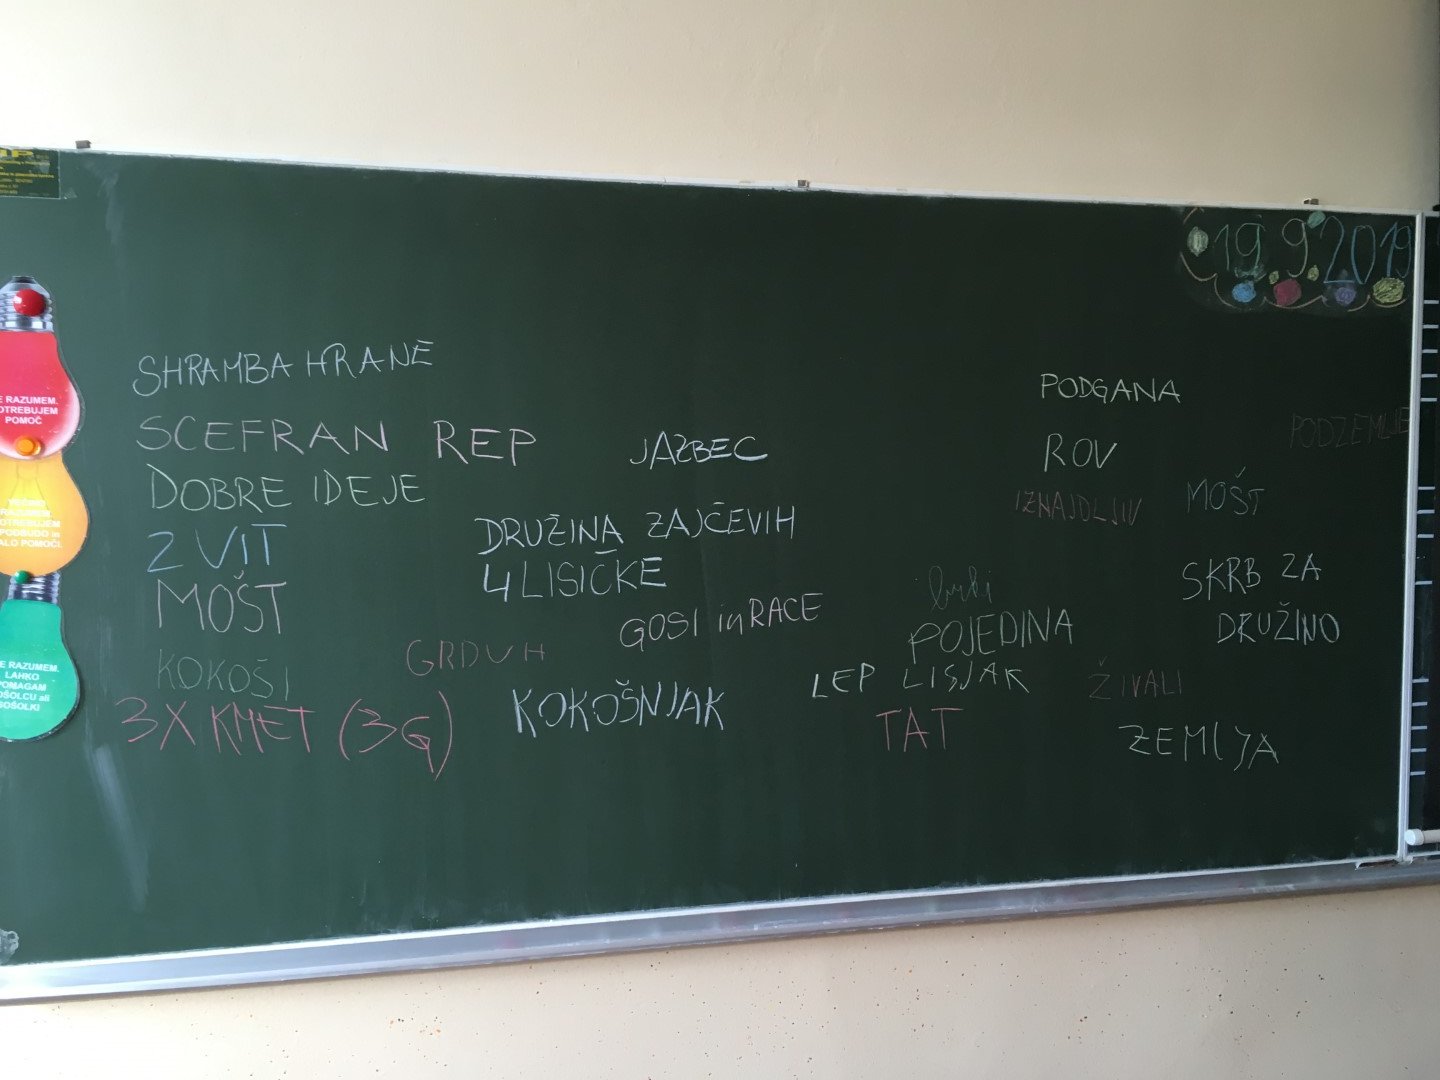 19.9.2019
SHRAMBA HRANE
SCEFRAN REP
DOBRE IDEJE
ZVIT
MOŠT
KOKOŠI
3X KMET (3G)
GRDUH
JAZBEC
DRUŽINA ZAJČEVIH
4 LISIČKE
GOSI in RACE
KOKOŠNJAK
PODGANA
ROV
IZNAJDLJIV
PODZEMLJE
MOŠT
SKRB ZA
DRUŽINO
POJEDINA
LEP LISJAK
TAT
ŽIVALI
ZEMLJA
E RAZUMEM.
OTREBUJEM
POMOČ
RAZUMEM.
OTREBUJEM
PODBUDO in
ALO POMOČI.
E RAZUMEM.
LAHKO
POMAGAM
OŠOLCU ali
SOŠOLKI